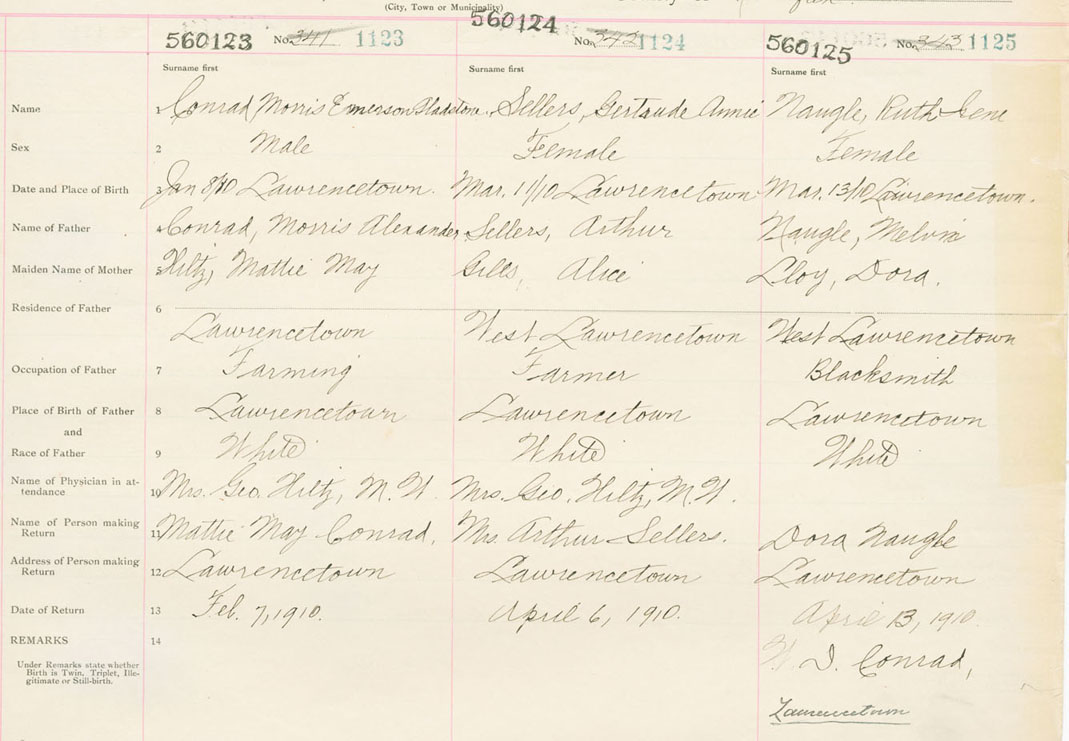 (City, Town or Municipality)
560123 No. 341 1123 560124 No. 342 1124 560125 No. 343 1125
Surname first Surname first Surname first
Name 1 Conrad Morris Emerson Gladstone. Sellers, Gertrude Annie Naugle, Ruth Gene
Sex 2 Male Female Female
Date and Place of Birth 3 Jan 8/10 Lawrencetown. Mar. 11/10 Lawrencetown Mar. 13/10 Lawrencetown.
Name of Father 4 Conrad, Morris Alexander Sellers, Arthur Naugle, Melvin
Maiden Name of Mother 5 Hiltz, Mattie May Alice Lloy, Dora.
Residence of Father 6
Lawrencetown West Lawrencetown West Lawrencetown
Occupation of Father 7 Farming Farmer Blacksmith
Place of Birth of Father 8 Lawrencetown Lawrencetown Lawrencetown
and
Race of Father 9 White White White
Name of Physician in at-
tendance 10 Mrs. Geo. Hiltz, M.W. Mrs. Geo. Hiltz, M.W.
Name of Person making
Return 11 Mattie May Conrad. Mrs. Arthur Sellers. Dora Naugle
Address of Person making
Return 12 Lawrencetown Lawrencetown Lawrencetown
Date of Return 13 Feb. 7, 1910. April 6, 1910. April 13, 1910.
REMARKS 14
Under Remarks state whether
Birth is Twin, Triplet, Ille-
gitimate or Still-birth.
Conrad,
Lawrencetown